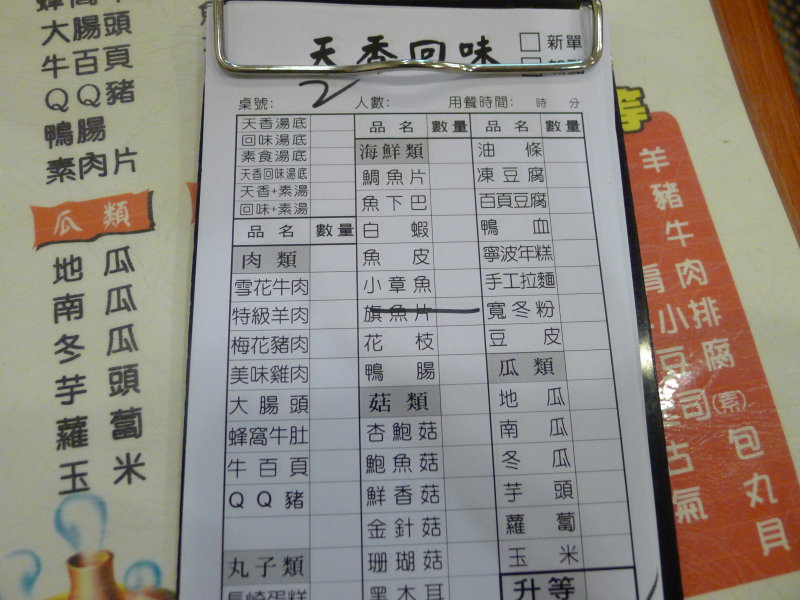 大腸頭
牛百頁
QQ豬
鴨腸
素肉片
瓜類
地瓜
南瓜
冬瓜
芋頭
蘿蔔
玉米
天香回味
新單
2
桌號:
人數:
用餐時間: 時 分
天香湯底
回味湯底
素食湯底
天香回味湯底
天香+素湯
回味+素湯
品名 數量
肉類
雪花牛肉
特級羊肉
梅花豬肉
美味雞肉
大腸頭
蜂窩牛肚
牛百頁
QQ豬
丸子類
長崎蛋糕
品名 數量
海鮮類
鯛魚片
魚下巴
白蝦
魚皮
小章魚
旗魚片
花枝
鴨腸
菇類
杏鮑菇
鮑魚菇
鮮香菇
金針菇
珊瑚菇
黑木耳
品名 數量
油條
凍豆腐
百頁豆腐
鴨血
寧波年糕
手工拉麵
寬冬粉
豆皮
瓜類
地瓜
南瓜
冬瓜
芋頭
蘿蔔
玉米
升等
等
羊
豬
牛
肉
小排
豆腐
司(素)
包
丸
貝